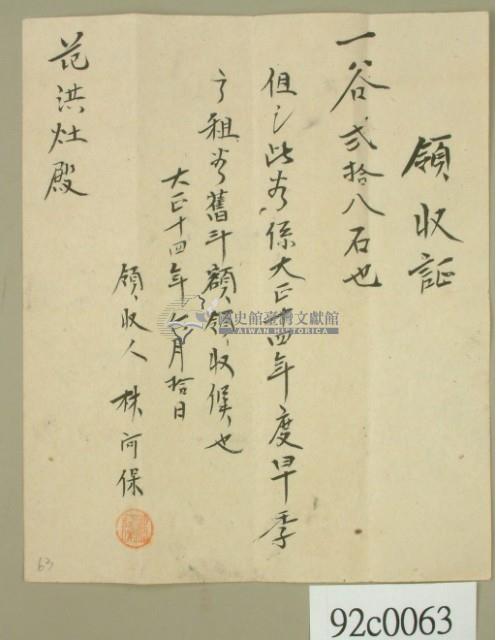 領收証
一谷弐拾八石也
但シ此谷係大正十四年度早季
ノ租谷舊斗額領收候也
大正十四年 月拾日
領收人 林阿保
范洪灶殿
國史館臺灣文獻館
TAIWAN HISTORICA
63
92c0063